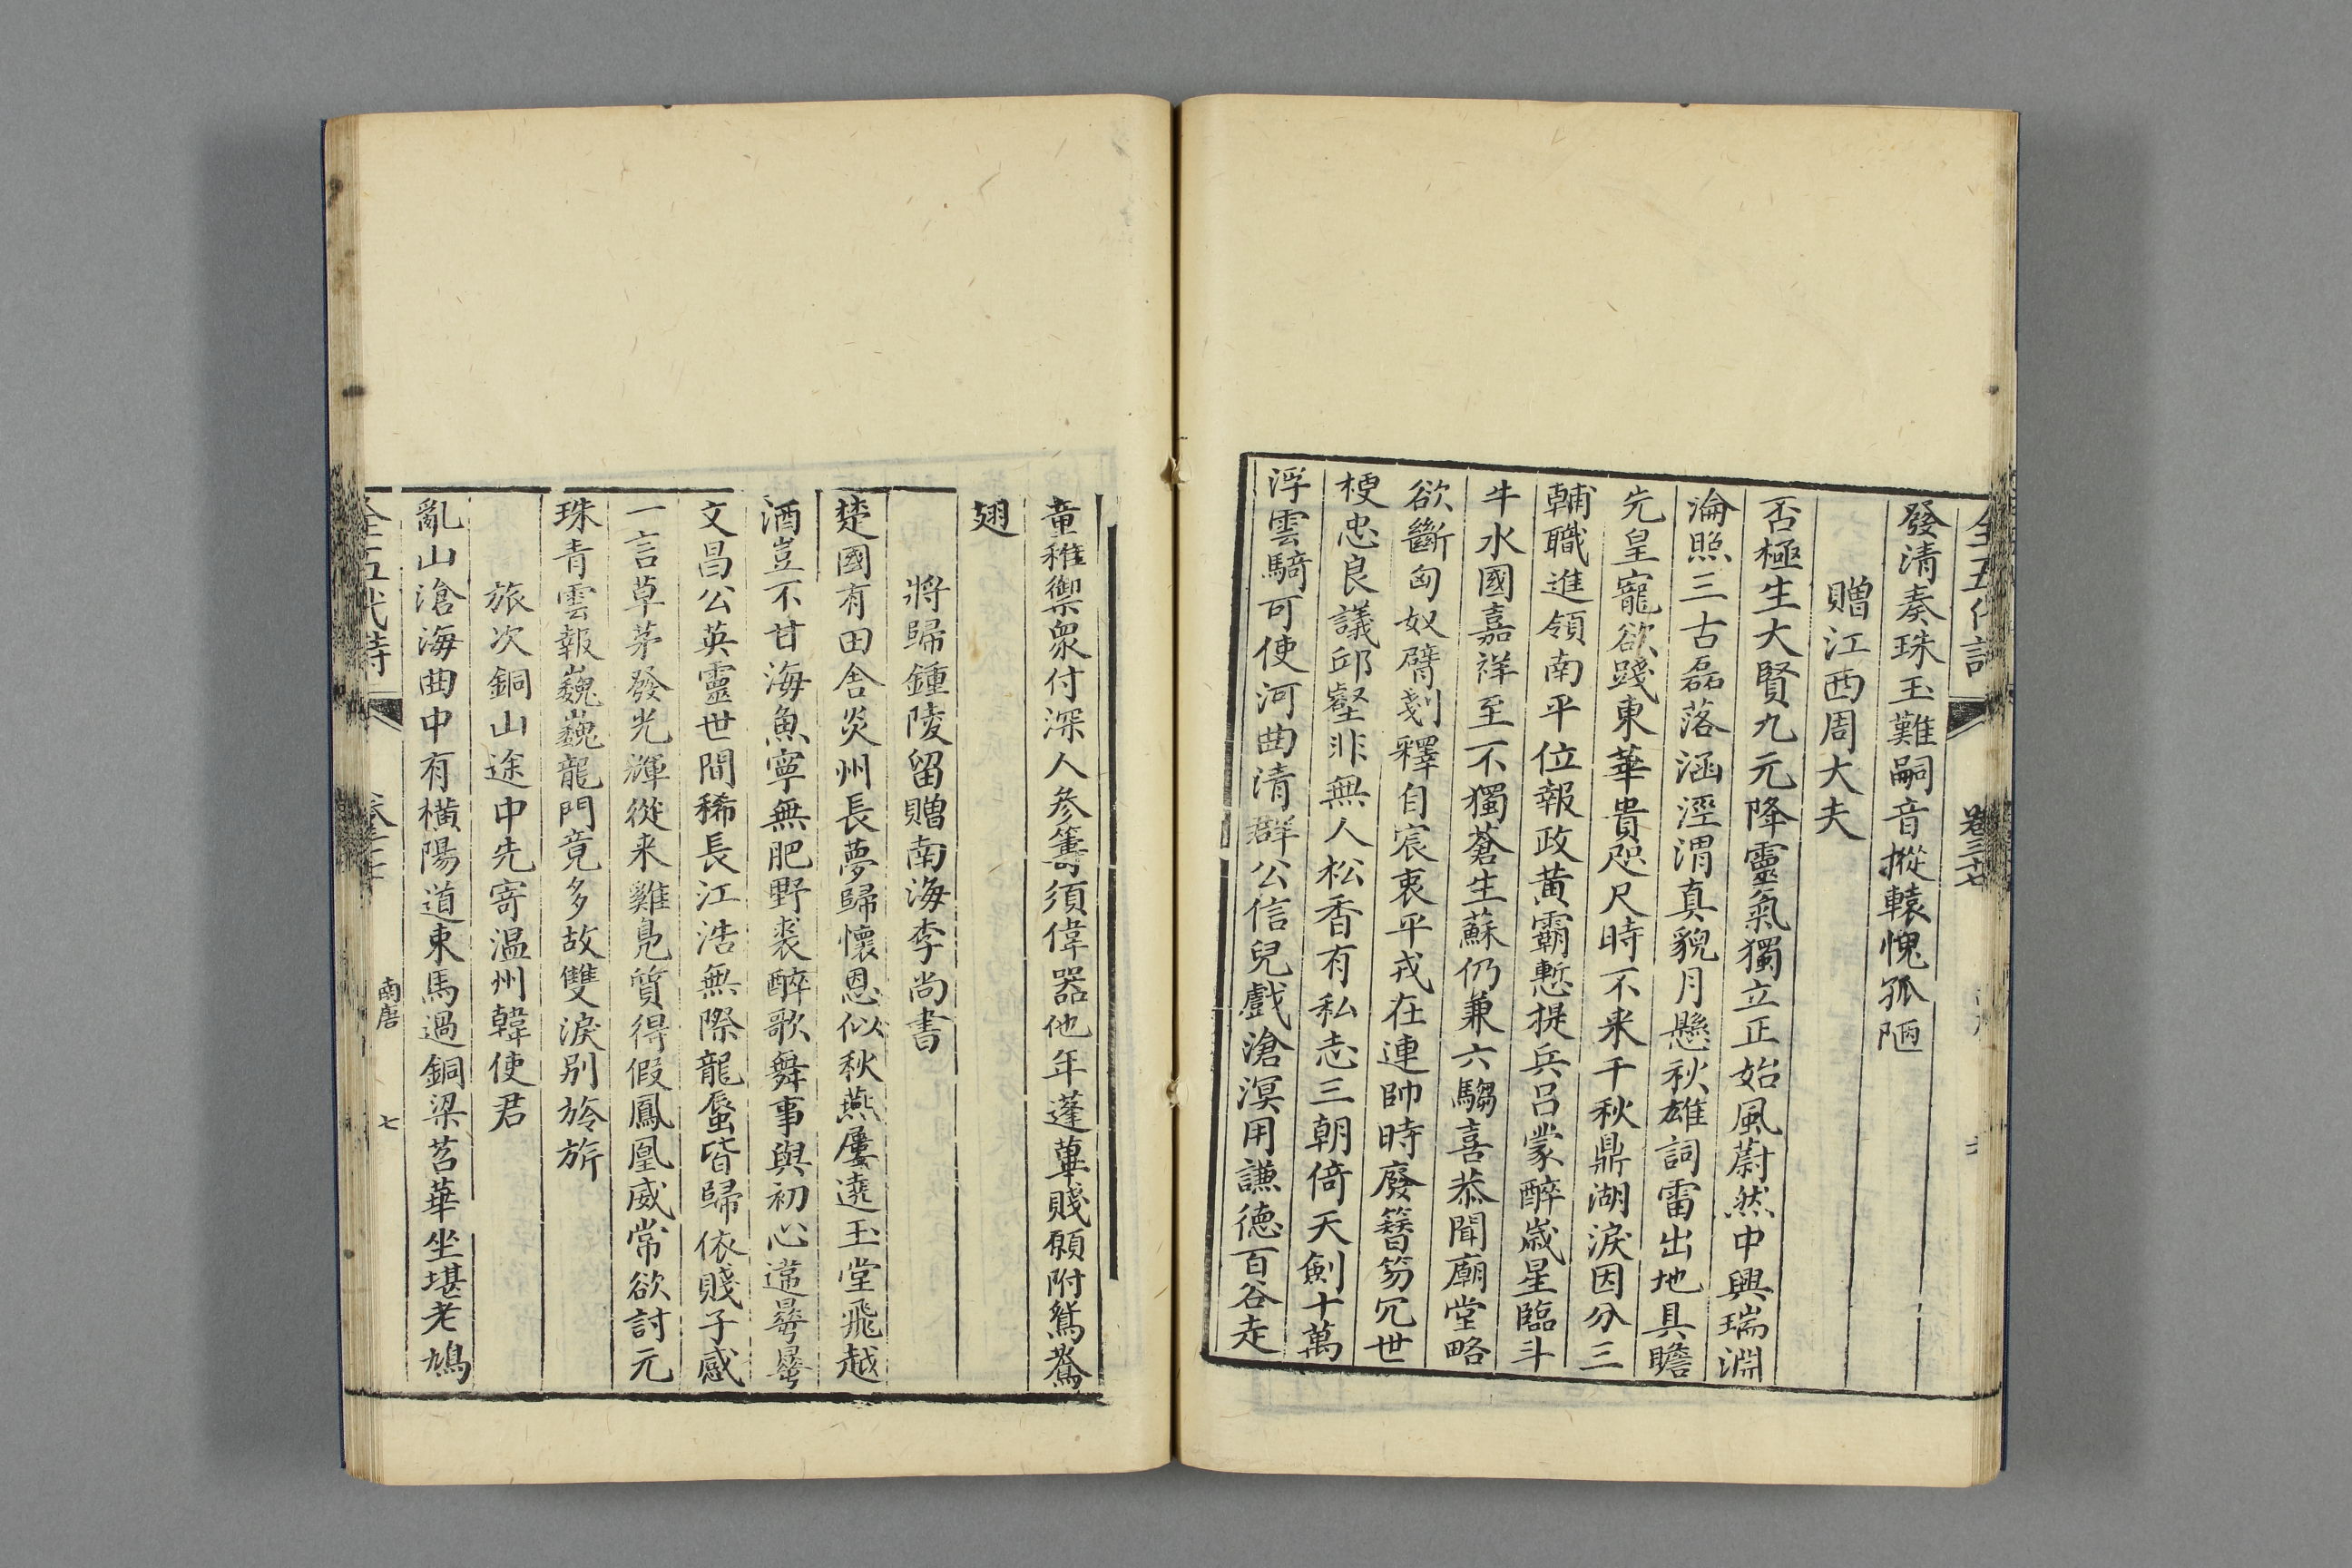 全五代詩 卷三七
發清奏珠玉難嗣音摐轅愧孤陋
贈江西周大夫
否極生大賢九元降靈氣獨立正始風蔚然中興瑞淵
淪照三古磊落涵涇渭真貌月懸秋雄詞雷出地具瞻
先皇寵欲踐東華貴咫尺時不来千秋鼎湖淚因分三
輔職進領南平位報政黃霸慙提兵呂蒙醉歲星臨斗
牛水國嘉祥至不獨蒼生蘇仍兼六騶喜恭聞廟堂略
欲斷匈奴臂刬釋自宸衷平戎在連帥時廢簪笏冗世
梗忠良議邱壑非無人松香有私志三朝倚天劍十萬
浮雲騎可使河曲清群公信兒戲滄溟用謙德百谷走
童稚禦衆付深人參籌須偉器他年蓬蓽賤願附鴛鴦
翅
將歸鍾陵留贈南海李尚書
楚國有田舍炎州長夢歸懷恩似秋燕屢遶玉堂飛越
酒豈不甘海魚寧無肥野裘醉歌舞事與初心違㬅㬅
文昌公英靈世間稀長江浩無際龍蜃皆歸依賤子感
一言草茅發光輝從来雞鳧質得假鳳凰威常欲討元
珠青雲報巍巍龍門竟多故雙淚别旍旂
旅次銅山途中先寄溫州韓使君
亂山滄海曲中有橫陽道東馬過銅梁苕華坐堪老鳩
全五代詩 卷三七 南唐 七